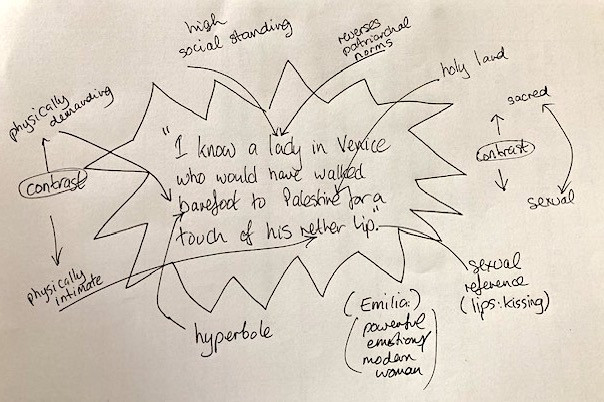 high
social standing
reverses
patriarchal
norms
holy land
physically
demanding
sacred
contrast
"I know a lady in Venice
who would have walked
barefoot to Palestine for a
touch of his nether lip."
contrast
sexual
physically
intimate
hyperbole
(Emilia:)
(powerful
emotions
modern
woman)
sexual
reference
(lips:kissing)